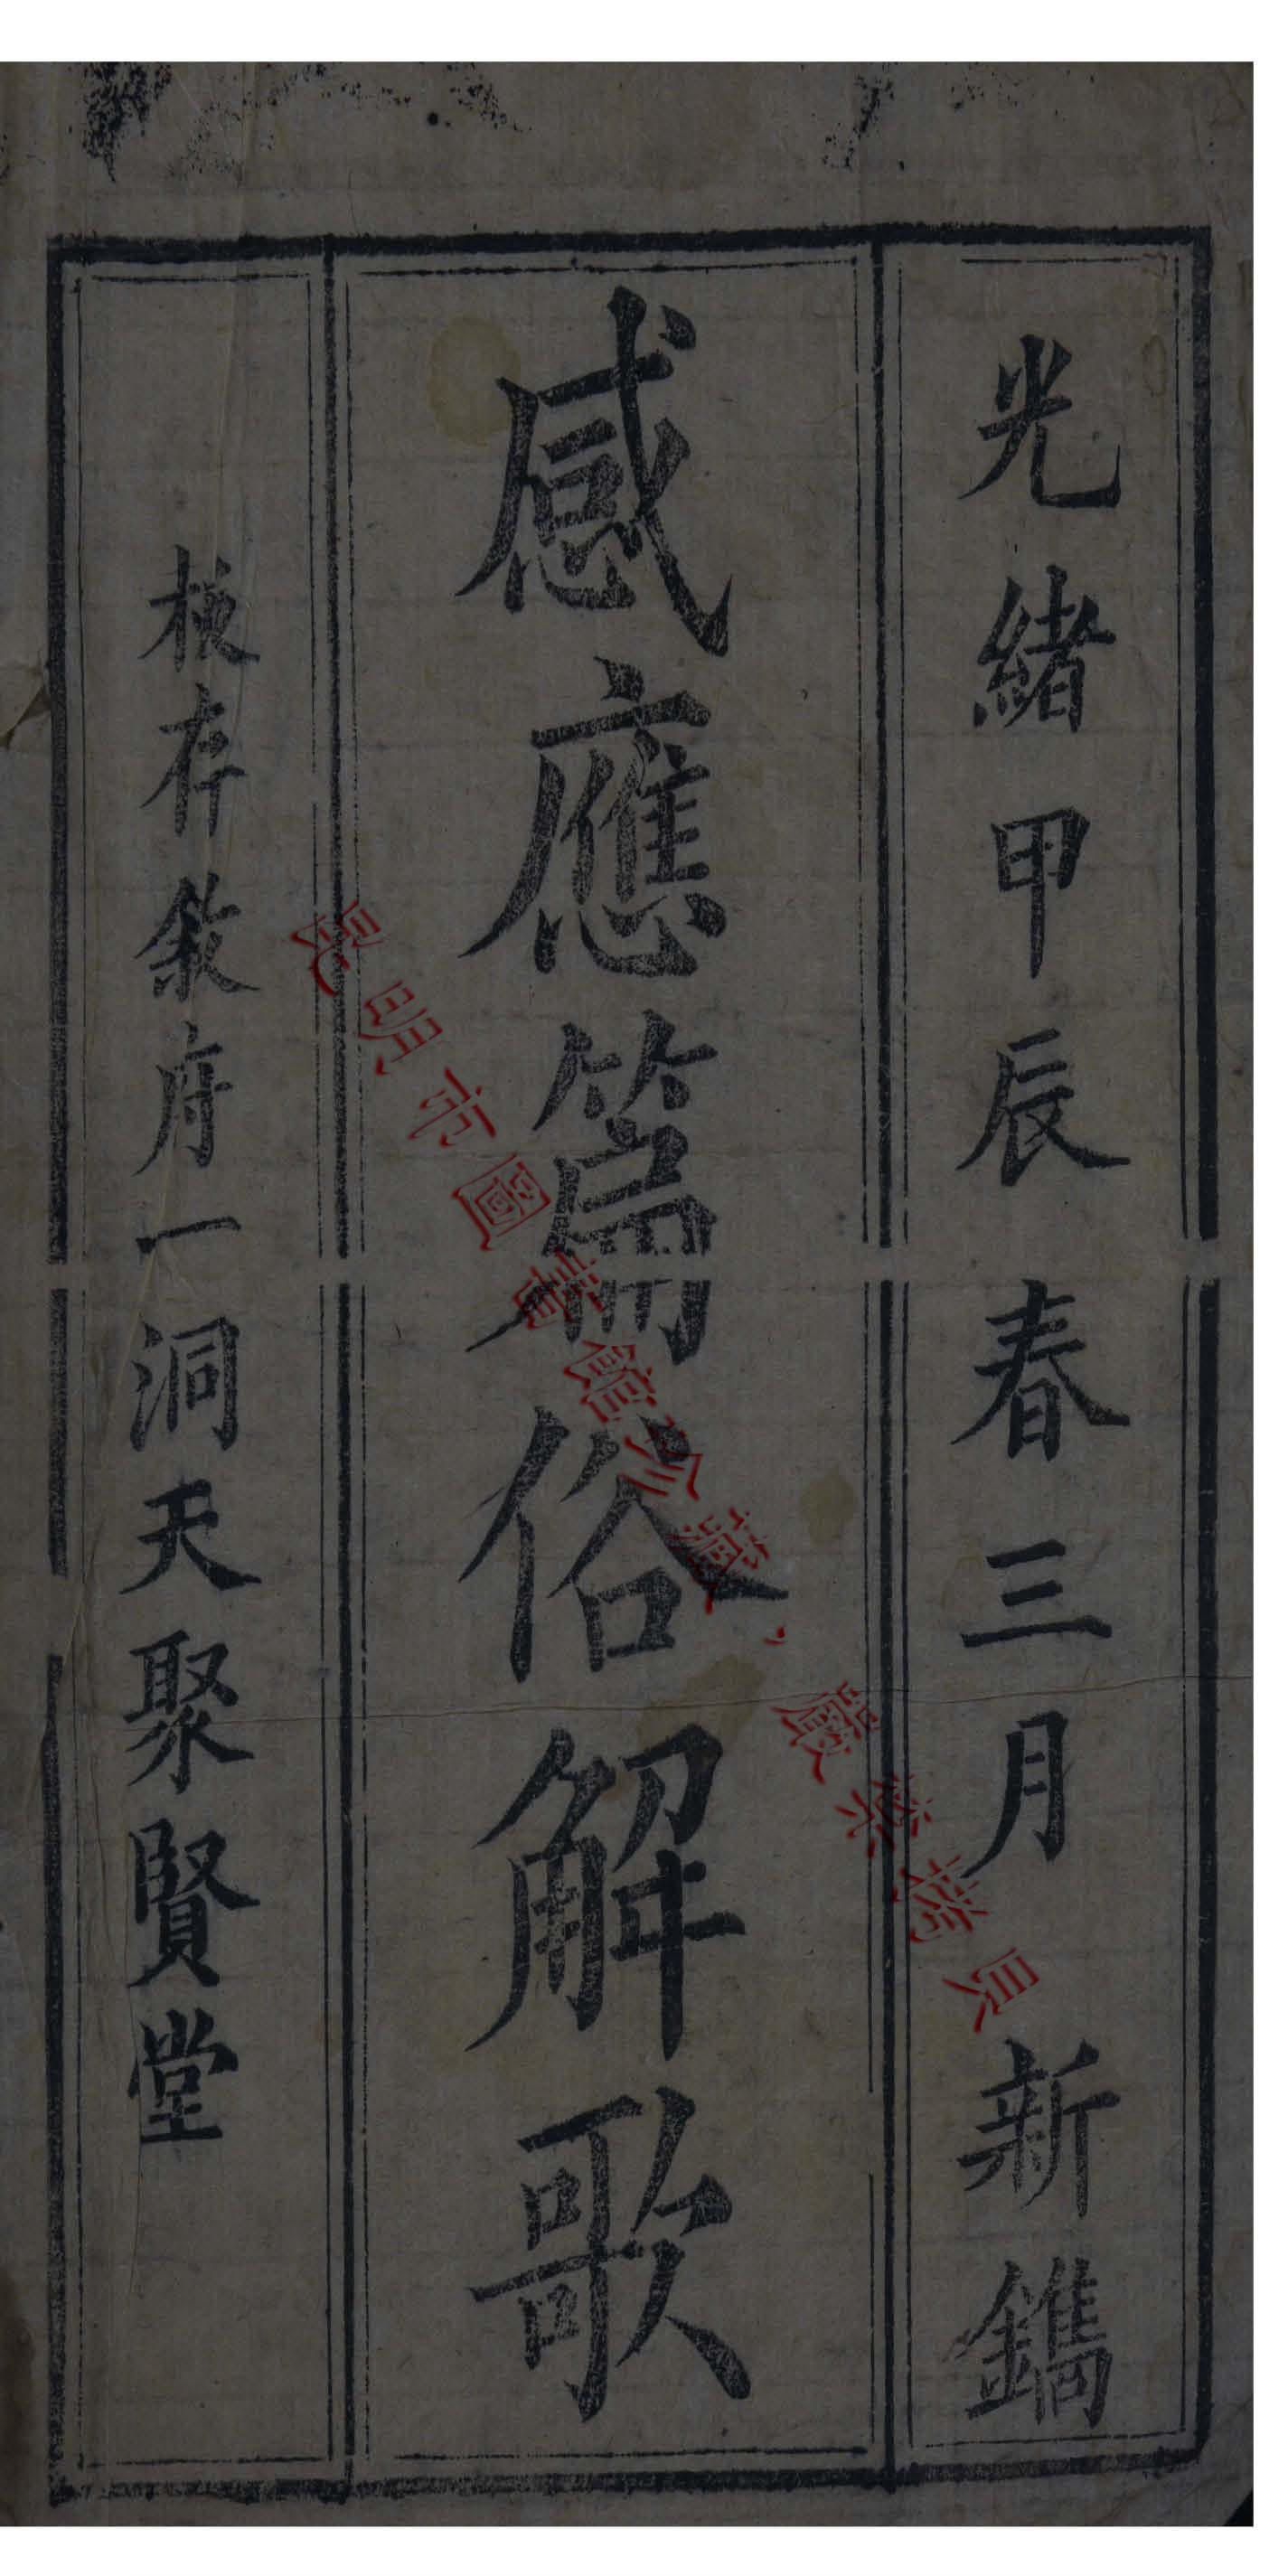 光緒甲辰春三月新鐫
感應篇俗解歌
板存敘府一洞天聚賢堂
昆明市圖書館珍藏，嚴禁拷貝